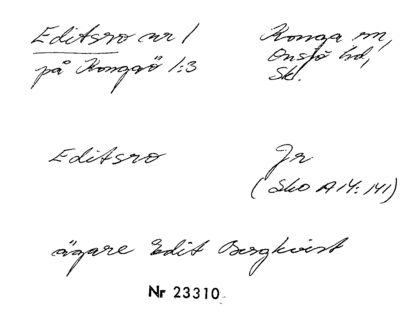 Editsro nr 1
på Kongaö 1:3
Konga sn,
Onsjö hd,
Sk.
Editsro
Jr
(Sko A14:141)
ägare Edit Bergkvist
Nr 23310